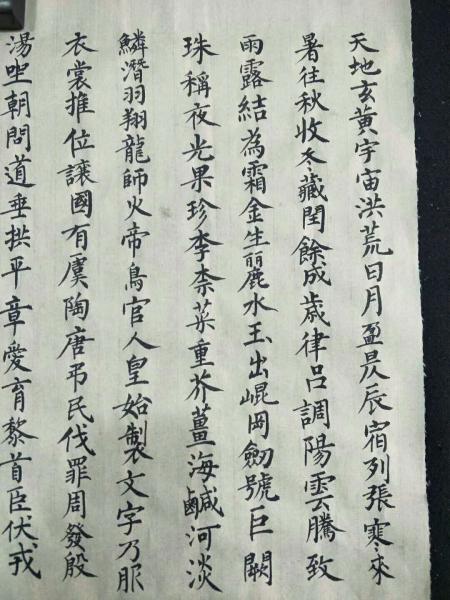 天地玄黃宇宙洪荒日月盈昃辰宿列張寒來
暑往秋收冬藏閏餘成歲律呂調陽雲騰致
雨露結為霜金生麗水玉出崐岡劒號巨闕
珠稱夜光果珍李柰菜重芥薑海鹹河淡
鱗潛羽翔龍師火帝鳥官人皇始製文字乃服
衣裳推位讓國有虞陶唐弔民伐罪周發殷
湯坐朝問道垂拱平章愛育黎首臣伏戎